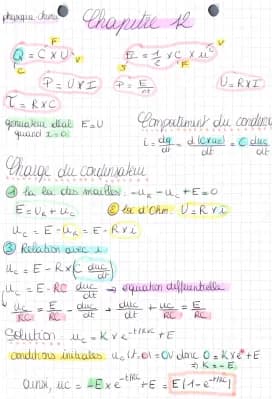 physique chimie
Chapitre 12
Q = C × U
F
V
C
E = 1/2 × C × u²
V
F
P = U × I
P = E/
U = R × I
τ = R × C
générateur idéal E = U
quand i = 0.
Comportement du condens
i = dq/dt = d(C×uc)/dt = C duc/dt
Charge du condensateur
① la loi des mailles : -uR - uc + E = 0
E = UR + uc
② loi d'Ohm : U = R × i
uc = E - uR = E - R × i
③ Relation avec i
uc = E - R × (C duc/dt)
uc = E - RC duc/dt → équation différentielle
uc/RC = E/RC - duc/dt → duc/dt + uc/RC = E/RC
Solution : uc = K × e^-t/RC + E
conditions initiales uc(t=0) = 0V donc 0 = K × e⁰ + E
⇒ K = -E
ainsi, uc = -E × e^-t/RC + E = E(1 - e^-t/RC)